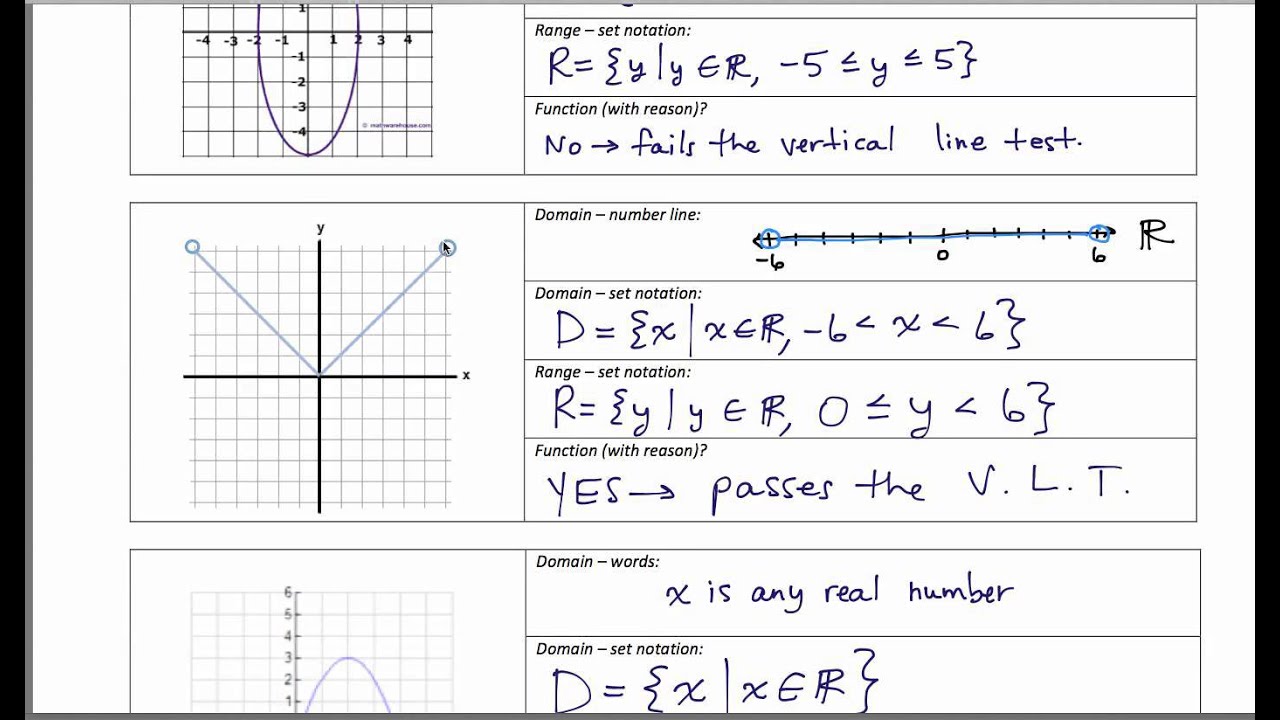 1
-4 -3 -2 -1 1 2 3 4
-1
-2
-3
-4
© mathwarehouse.com
Range – set notation:
R = {y | y ∈ ℝ, -5 ≤ y ≤ 5}
Function (with reason)?
No → fails the vertical line test.
y
x
Domain – number line:
-6 0 6 ℝ
Domain – set notation:
D = {x | x ∈ ℝ, -6 < x < 6}
Range – set notation:
R = {y | y ∈ ℝ, 0 ≤ y < 6}
Function (with reason)?
YES → passes the V. L. T.
6
5
4
3
2
1
Domain – words:
x is any real number
Domain – set notation:
D = {x | x ∈ ℝ}